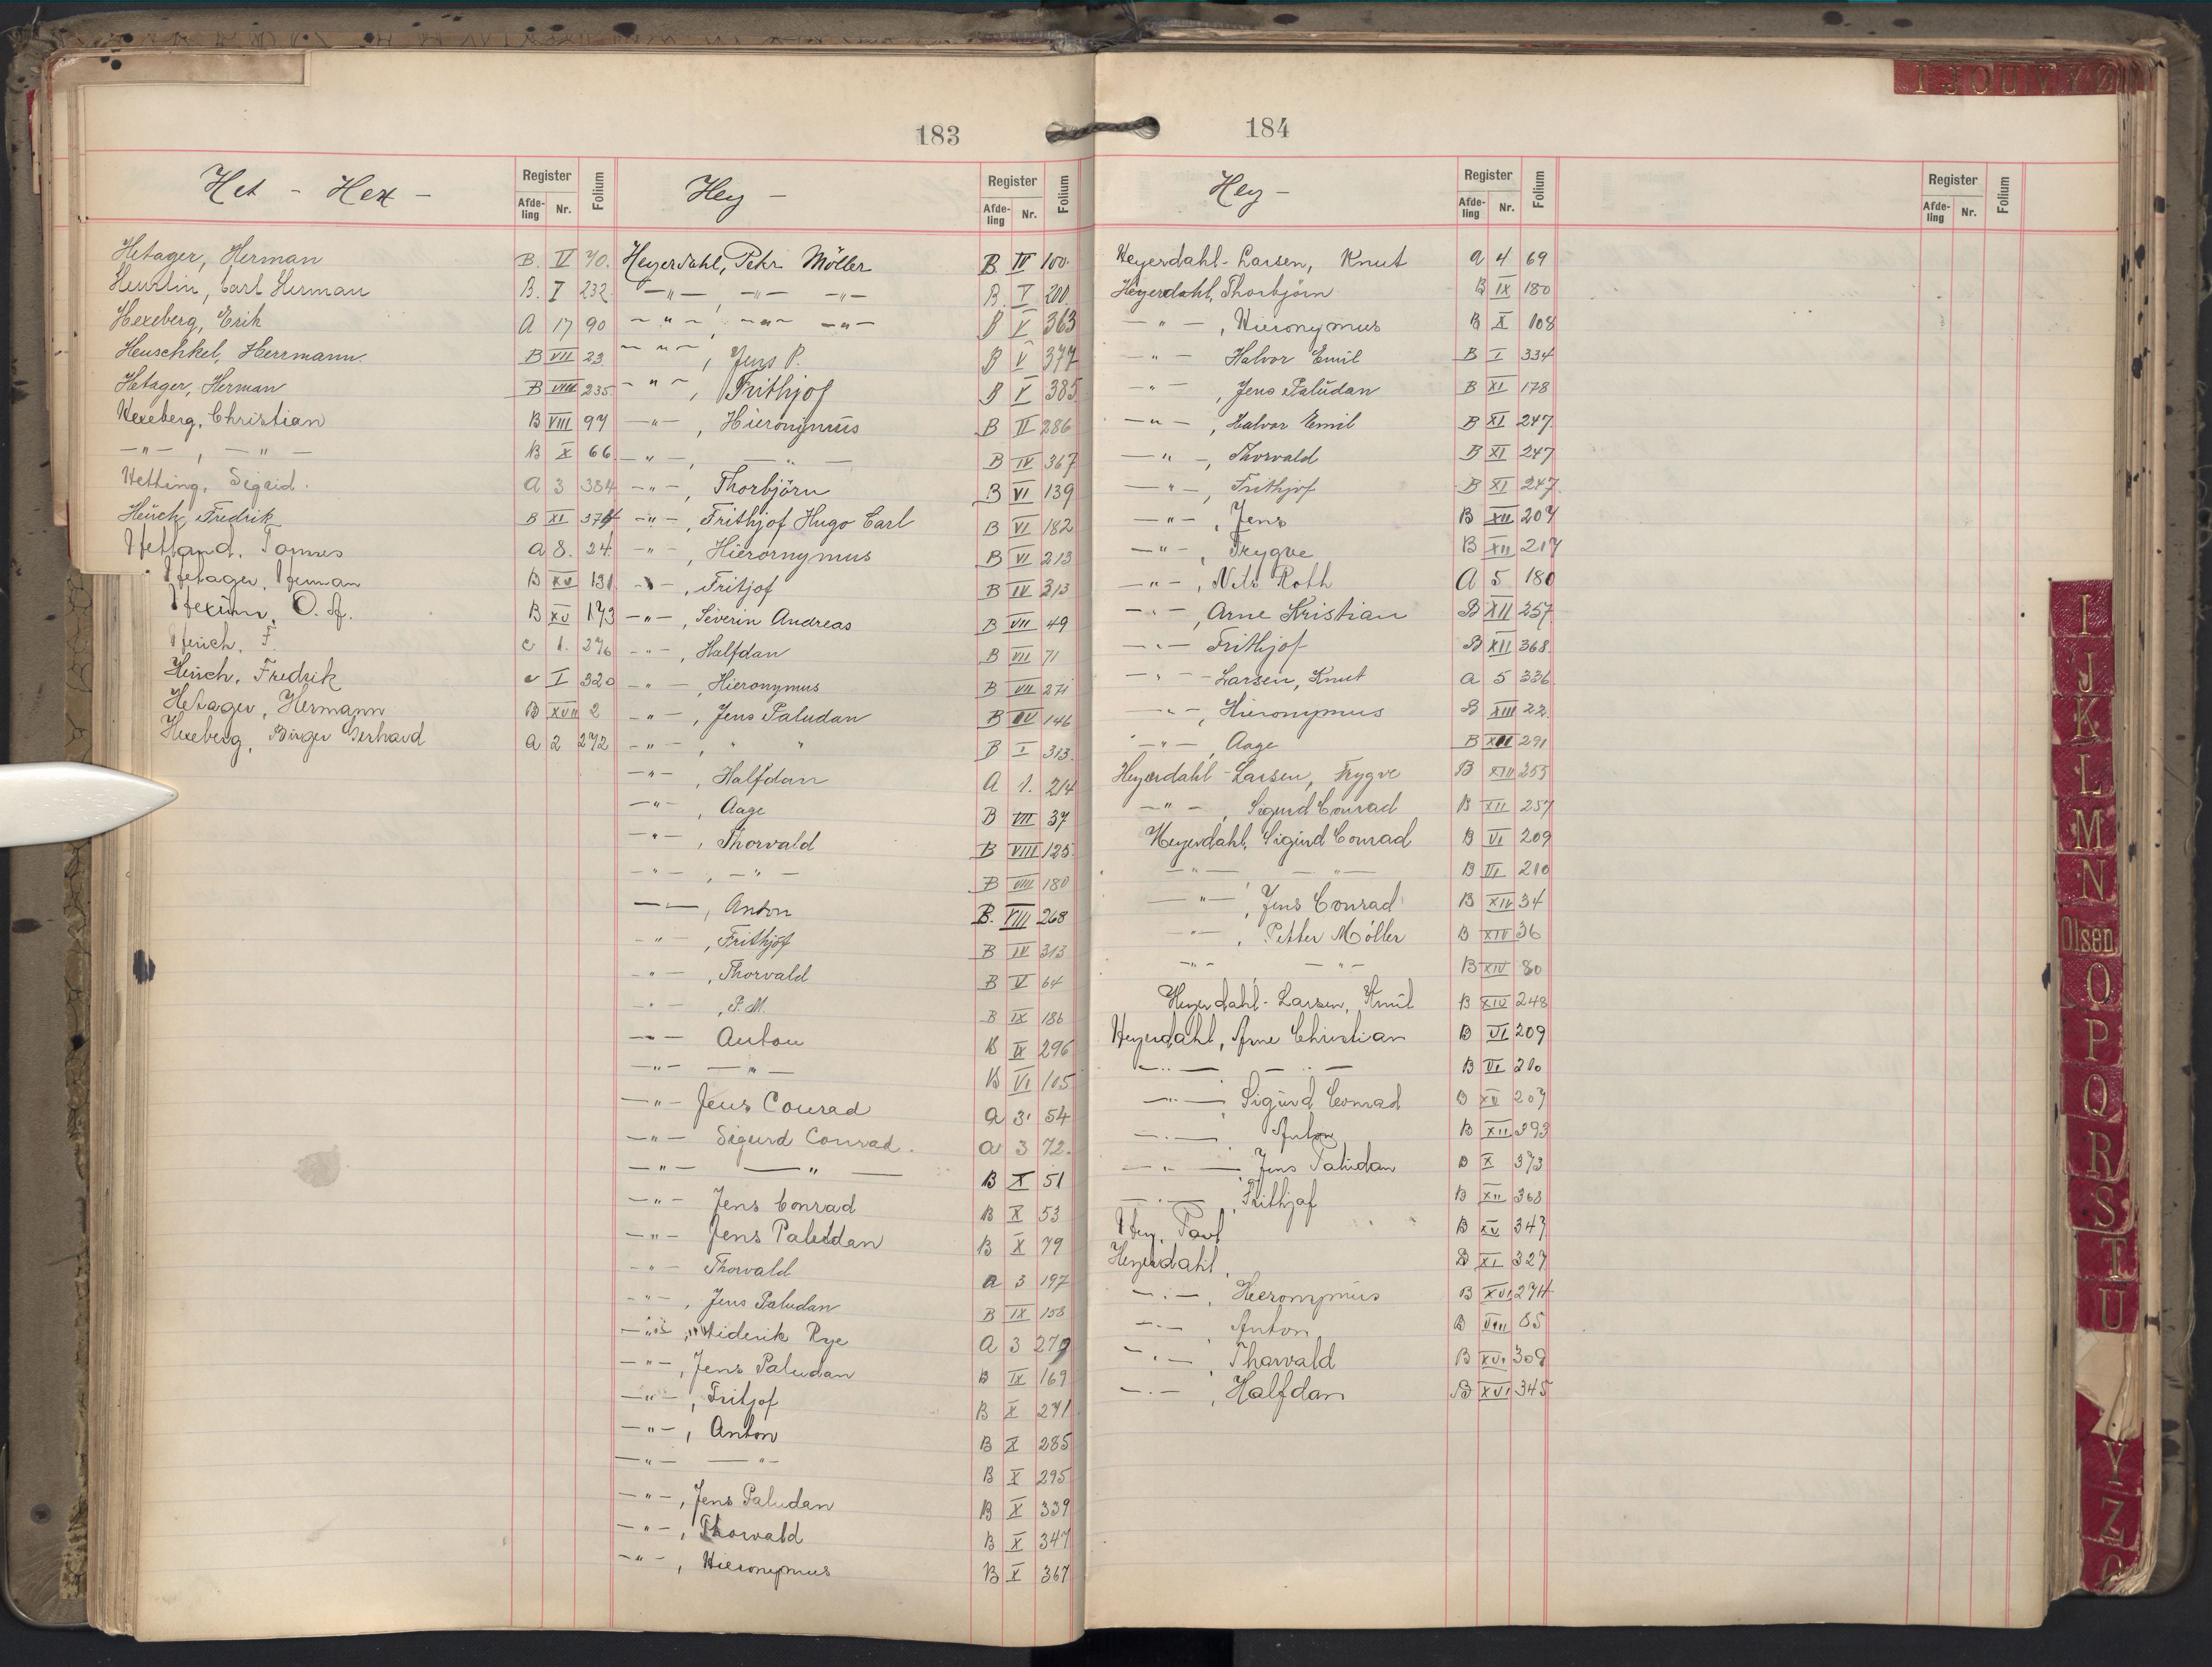 183
Het - Hex -
Register
Afde-ling Nr. Folium
Hetager, Herman B. V 70.
Heurlin, Carl Herman B. I 232
Hexeberg, Erik A 17 90
Heuschkel, Herrmann. B VII 23.
Hetager, Herman B VIII 235
Hexeberg, Christian B VIII 97
—"—, —"— B X 66
Hetting, Sigrid. A 3 384
Heuch, Fredrik B XI 374
Hetland, Tønnes A 8. 24.
Hetager, Herman B XV 131
Hexum, O. A. B XV 173
Heuch, F. C 1. 276
Heuch, Fredrik C I 320
Hetager, Hermann B XVII 2
Hexeberg, Birger Gerhard A 2 272
Hey -
Register
Afde-ling Nr. Folium
Heyerdahl, Petr Möller B IV 100
—"—, —"— —"— B. V 200.
—"—, —"— —"— B V 363
—"—, Jens P. B V 377
—"—, Frithjof B V 385
—"—, Hieronymus B II 286
—"—, —"— B IV 367
—"—, Thorbjörn B VI 139
—"—, Frithjof Hugo Carl B VI 182
—"—, Hierornymus B VI 213
—"—, Fritjof B IV 313
—"—, Severin Andreas B VII 49
—"—, Halfdan B VII 71
—"—, Hieronymus B VII 271
—"—, Jens Paludan B IV 146
—"—, " " B I 313.
—"—, Halfdan A 1. 214
—"—, Aage B VII 37
—"—, Thorvald B VIII 125
—"—, —"— B VIII 180
—"—, Anton B. VIII 268
—"—, Frithjof B IV 313
—"—, Thorvald B V 64
—"—, P. M. B IX 186
—"— Anton B IX 296
—"— —"— B VI 105
—"— Jens Conrad A 3 54
—"— Sigurd Conrad. A 3 72.
—"— —"— B X 51
—"— Jens Conrad B X 53
—"— Jens Paludan B X 79
—"— Thorvald A 3 197
—"—, Jens Paludan B IX 158
—"—, Diderik Rye A 3 279
—"—, Jens Paludan B IX 169
—"—, Fritjof B X 271
—"—, Anton B X 285
—"— —"— B X 295
—"—, Jens Paludan B X 339
—"—, Thorvald B X 347
—"—, Hieronymus B X 367
184
Hey -
Register
Afde-ling Nr. Folium
Heyerdahl-Larsen, Knut A 4 69
Heyerdahl, Thorbjörn B IX 180
—"—, Hieronymus B X 108
—"— Halvor Emil B I 334
—"—, Jens Paludan B XI 178
—"—, Halvor Emil B XI 247
—"—, Thorvald B XI 247
—"—, Frithjof B XI 247
—"—, Jens B XII 207
—"—, Trygve B XII 217
—"—, Nils Roth A 5 180
—"—, Arne Kristian B XII 257
—"— Frithjof B XII 368
—"— -Larsen, Knut A 5 336
—"—, Hieronymus B XIII 22
—"—, Aage B XIII 291
Heyerdahl-Larsen, Trygve B XIII 255
—"—, Sigurd Conrad B XII 257
Heyerdahl, Sigurd Conrad B VI 209
—"— —"— B VI 210
—"—, Jens Conrad B XIV 34
—"—, Petter Möller B XIV 36
—"— —"— B XIV 80
Heyerdahl-Larsen, Knut B XIV 248
Heyerdahl, Arne Christian B VI 209
—"— —"— B VI 210
—"—, Sigurd Conrad B XV 207
—"—, Anton B XII 393
—"—, Jens Paludan B X 373
—"—, Frithjof B XII 368
Hey, Paul B XV 347
Heyerdahl, B XI 327
—"—, Hieronymus B XVI 274
—"—, Anton B VIII 65
—"—, Thorvald B XVI 309
—"—, Halfdan B XVI 345
Register
Afde-ling Nr. Folium
I J O U V Y Ø
I
J
K
L
M
N
Olsen
O
P
Q
R
S
T
U
Y
Z